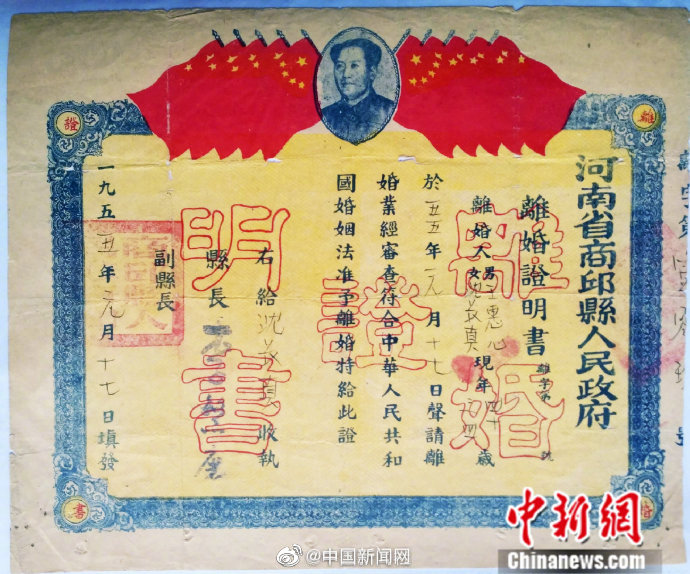 離
婚
證
書
河南省商邱縣人民政府
離婚證明書
離字第 號
離婚人男王惠心現年五十歲
女沈美真
於一九五五年元月十七日聲請離
婚業經審查符合中華人民共和
國婚姻法准予離婚特給此證
右給沈美真收執
縣長
副縣長
一九五五年元月十七日填發
離婚
證
明書
@中国新闻网
中新網
Chinanews.com